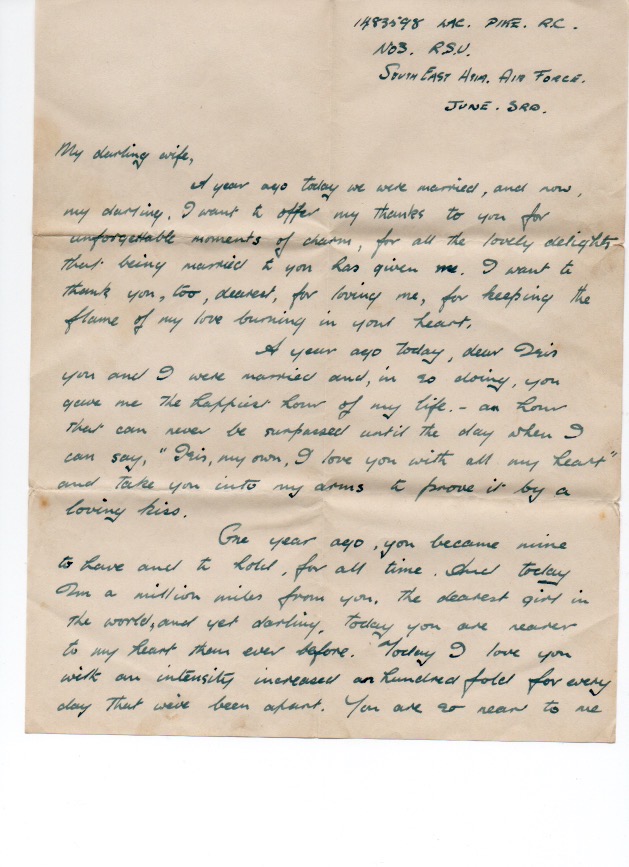 1483598 LAC. PIKE. R.C.
No3. R.S.U.
SOUTH EAST ASIA. AIR FORCE.
JUNE. 3RD.
My darling wife,
A year ago today we were married, and now,
my darling, I want to offer my thanks to you for
unforgettable moments of charm, for all the lovely delights
that being married to you has given me. I want to
thank you, too, dearest, for loving me, for keeping the
flame of my love burning in your heart.
A year ago today, dear Iris
you and I were married and, in so doing, you
gave me the happiest hour of my life. - an hour
that can never be surpassed until the day when I
can say, "Iris, my own, I love you with all my heart"
and take you into my arms to prove it by a
loving kiss.
One year ago, you became mine
to have and to hold, for all time. And today
I'm a million miles from you, the dearest girl in
the world, and yet darling, today you are nearer
to my heart than ever before. Today I love you
with an intensity increased an hundred fold for every
day that we've been apart. You are so near to me